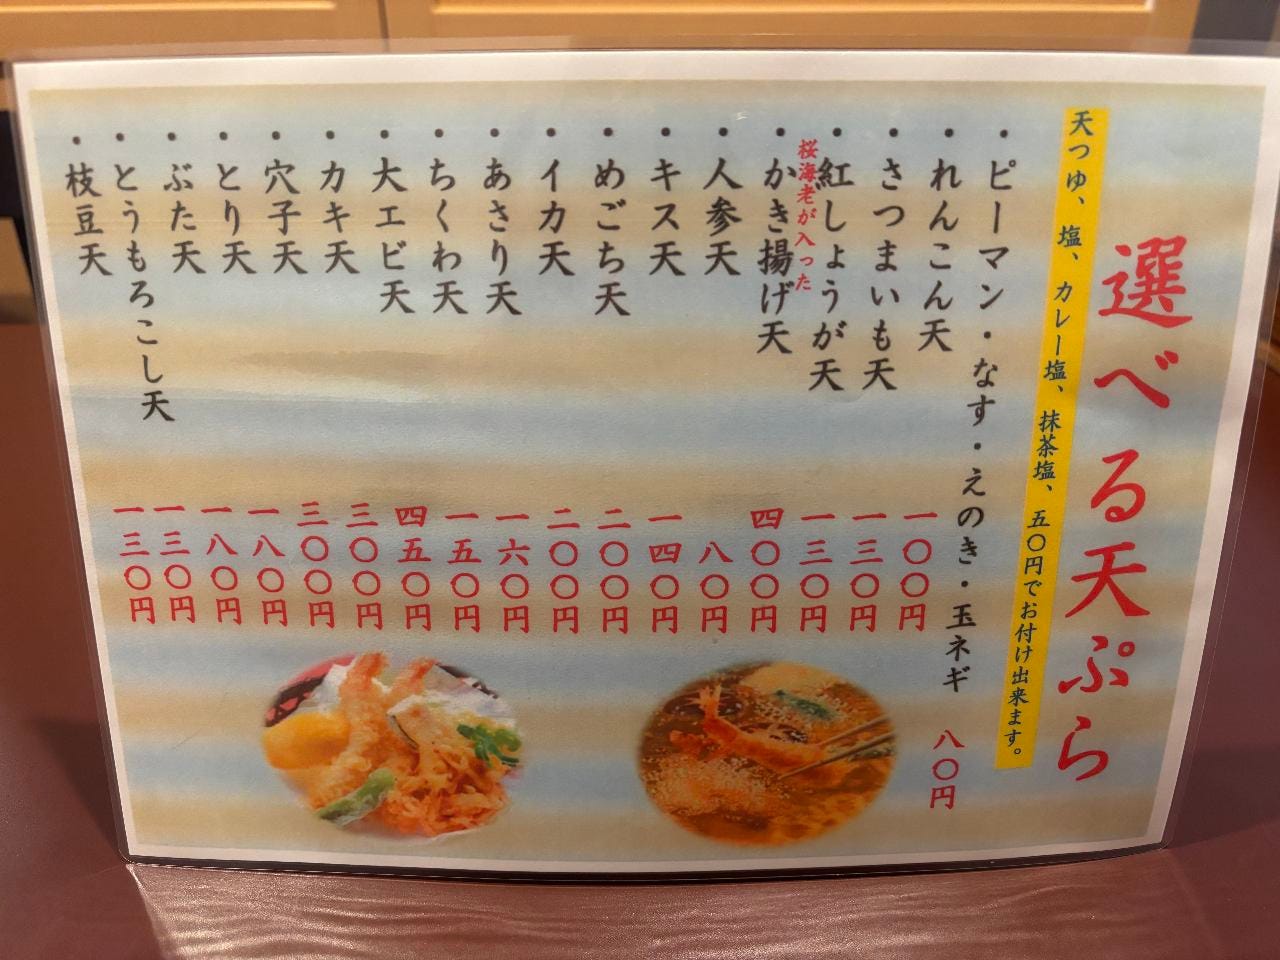 選べる天ぷら
天つゆ、塩、カレー塩、抹茶塩、五〇円でお付け出来ます。
・ピーマン・なす・えのき・玉ネギ 八〇円
・れんこん天 一〇〇円
・さつまいも天 一三〇円
・紅しょうが天 一三〇円
桜海老が入った
・かき揚げ天 四〇〇円
・人参天 八〇円
・キス天 一四〇円
・めごち天 二〇〇円
・イカ天 二〇〇円
・あさり天 一六〇円
・ちくわ天 一五〇円
・大エビ天 四五〇円
・カキ天 三〇〇円
・穴子天 三〇〇円
・とり天 一八〇円
・ぶた天 一八〇円
・とうもろこし天 一三〇円
・枝豆天 一三〇円